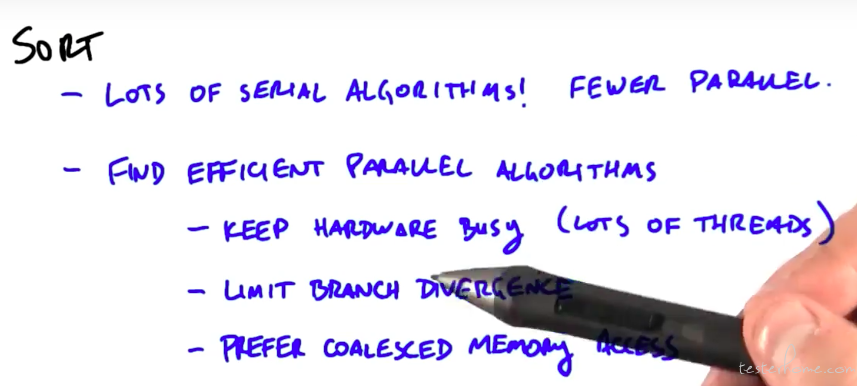 SORT
- LOTS OF SERIAL ALGORITHMS! FEWER PARALLEL.
- FIND EFFICIENT PARALLEL ALGORITHMS
- KEEP HARDWARE BUSY (LOTS OF THREADS)
- LIMIT BRANCH DIVERGENCE
- PREFER COALESCED MEMORY ACCESS